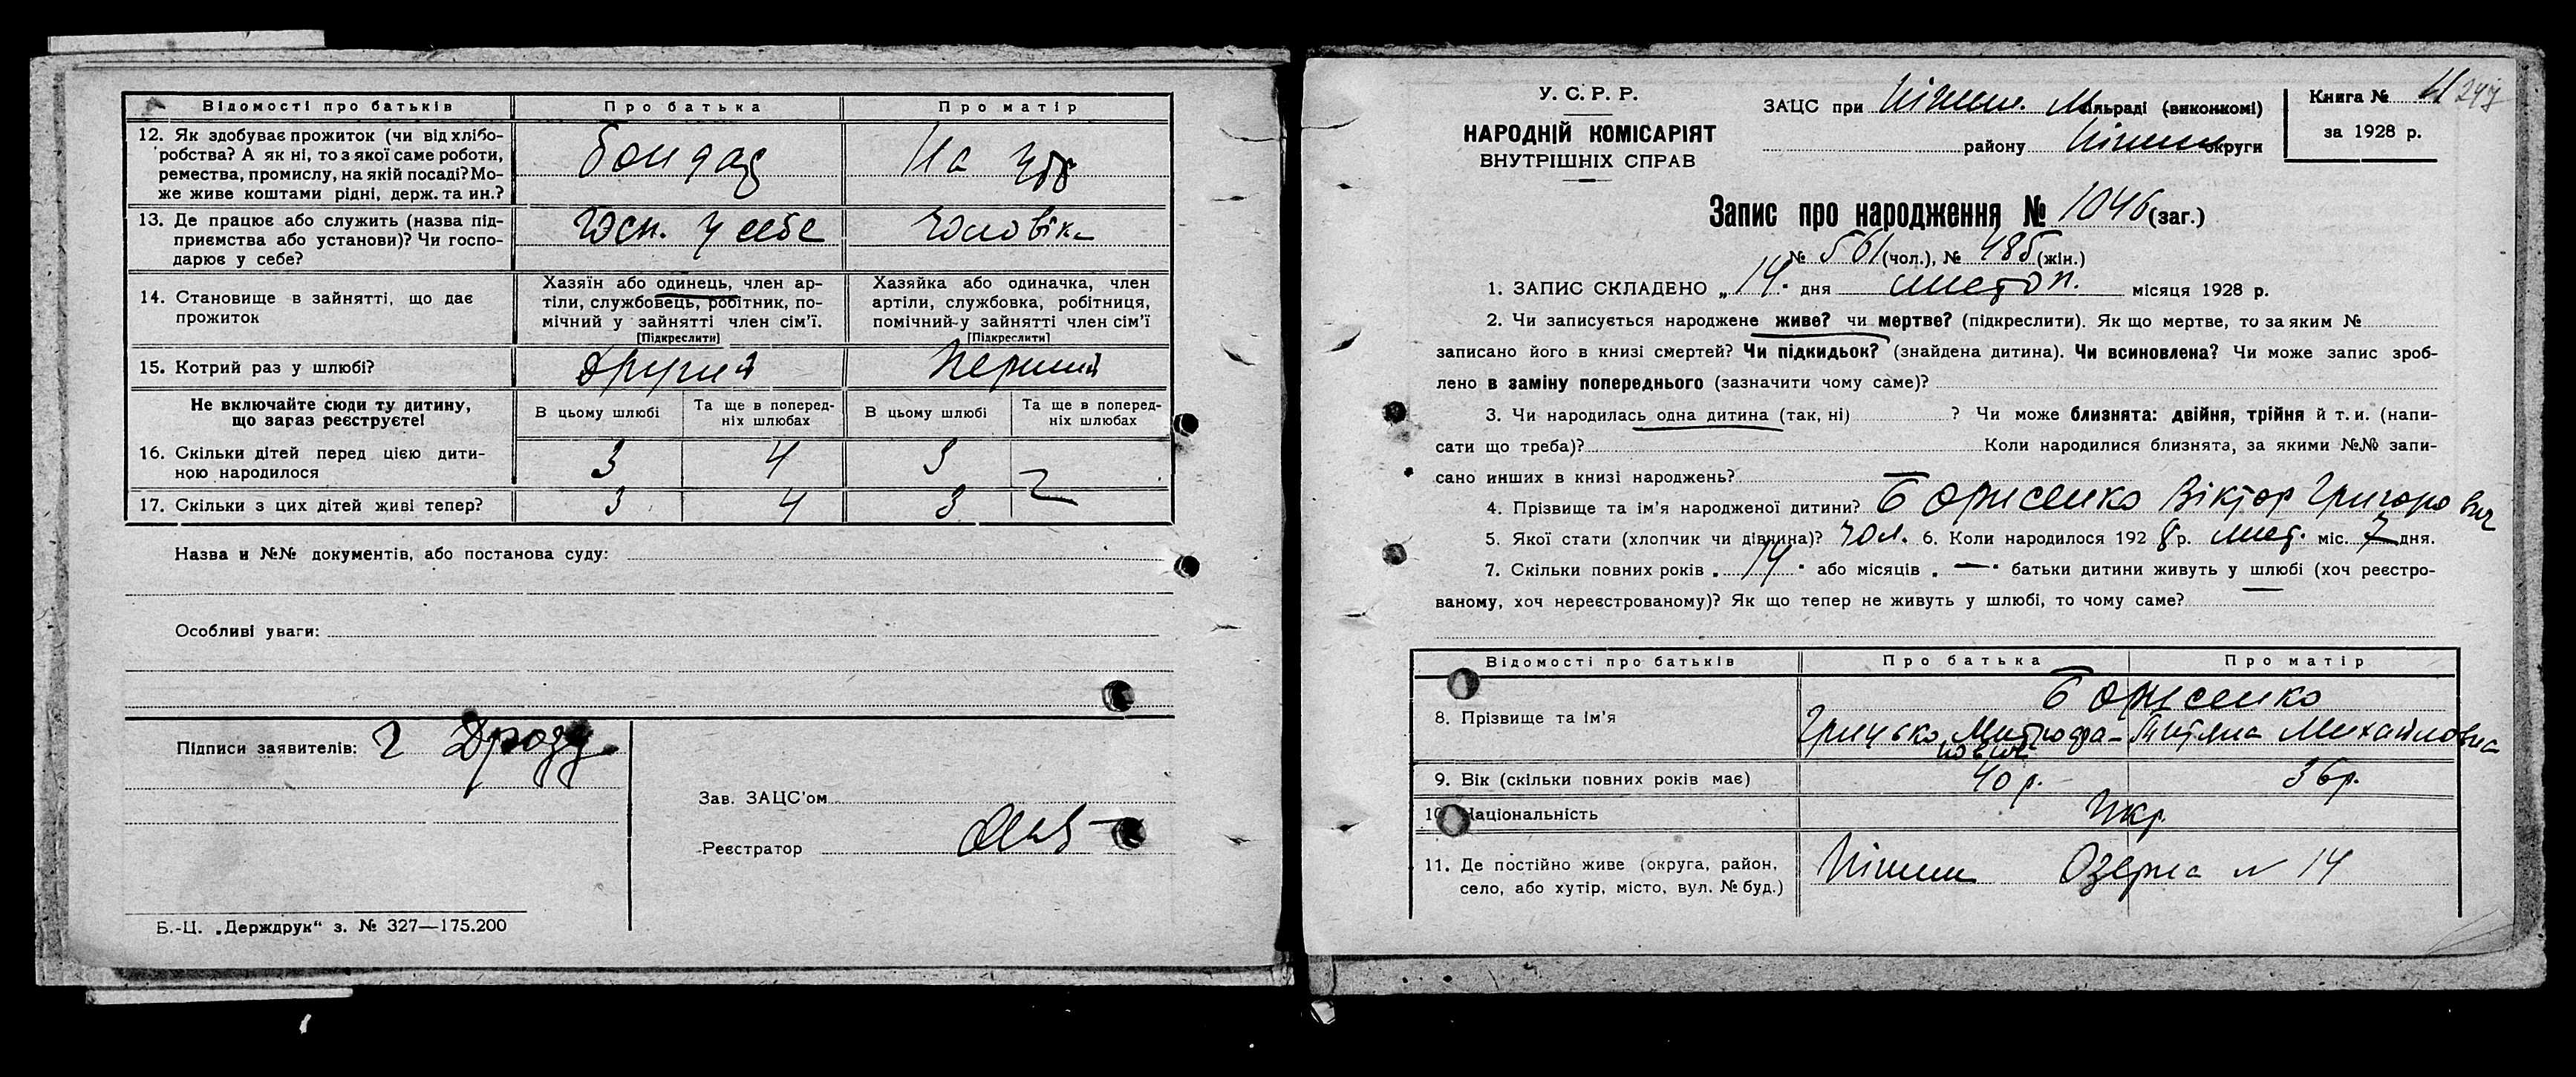 Відомості про батьків Про батька Про матір
12. Як здобуває прожиток (чи від хлібо-
робства? А як ні, то з якої саме роботи,
ремества, промислу, на якій посаді? Мо-
же живе коштами рідні, держ. та ин.?
бондар На утр
13. Де працює або служить (назва під-
приємства або установи)? Чи госпо-
дарює у себе?
госп. у себе чоловіка
14. Становище в зайнятті, що дає
прожиток
Хазяїн або одинець, член ар-
тіли, службовець, робітник, по-
мічний у зайнятті член сім'ї.
[Підкреслити]
Хазяйка або одиначка, член
артіли, службовка, робітниця,
помічний у зайнятті член сім'ї
[Підкреслити]
15. Котрий раз у шлюбі? другий перший
Не включайте сюди ту дитину,
що зараз реєструєте!
В цьому шлюбі Та ще в поперед-
ніх шлюбах В цьому шлюбі Та ще в поперед-
ніх шлюбах
16. Скільки дітей перед цією дити-
ною народилося
3 4 3
17. Скільки з цих дітей живі тепер? 3 4 3
Назва и №№ документів, або постанова суду:
Особливі уваги:
Підписи заявителів: Г Дрозд
Зав. ЗАЦС'ом
Реєстратор
Б.-Ц. „Держдрук" з. № 327—175.200
У. С. Р. Р.
НАРОДНІЙ КОМІСАРІЯТ
ВНУТРІШНІХ СПРАВ
ЗАЦС при Ніжин. М сільраді (виконкомі)
району Ніжин округи
Книга № 11 247
за 1928 р.
Запис про народження № 1046 (заг.)
№ 561 (чол.), № 485 (жін.)
1. ЗАПИС СКЛАДЕНО „ 14 " дня листоп. місяця 1928 р.
2. Чи записується народжене живе? чи мертве? (підкреслити). Як що мертве, то за яким №
записано його в книзі смертей? Чи підкидьок? (знайдена дитина). Чи всиновлена? Чи може запис зроб-
лено в заміну попереднього (зазначити чому саме)?
3. Чи народилась одна дитина (так, ні) ? Чи може близнята: двійня, трійня й т. и. (напи-
сати що треба)? Коли народилися близнята, за якими №№ запи-
сано инших в книзі народжень?
4. Прізвище та ім'я народженої дитини? Борисенко Віктор Григорович
5. Якої статі (хлопчик чи дівчина)? чол. 6. Коли народилося 1928 р. лист. міс. 7 дня.
7. Скільки повних років „ 14 " або місяців „ — " батьки дитини живуть у шлюбі (хоч реєстро-
ваному, хоч нереєстрованому)? Як що тепер не живуть у шлюбі, то чому саме?
Відомості про батьків Про батька Про матір
Борисенко
8. Прізвище та ім'я Грицько Митрофа- Тетяна Михайловна
нович
9. Вік (скільки повних років має) 40 р. 36 р.
10. Національність Укр.
11. Де постійно живе (округа, район,
село, або хутір, місто, вул. № буд.)
Ніжин Озерна № 14